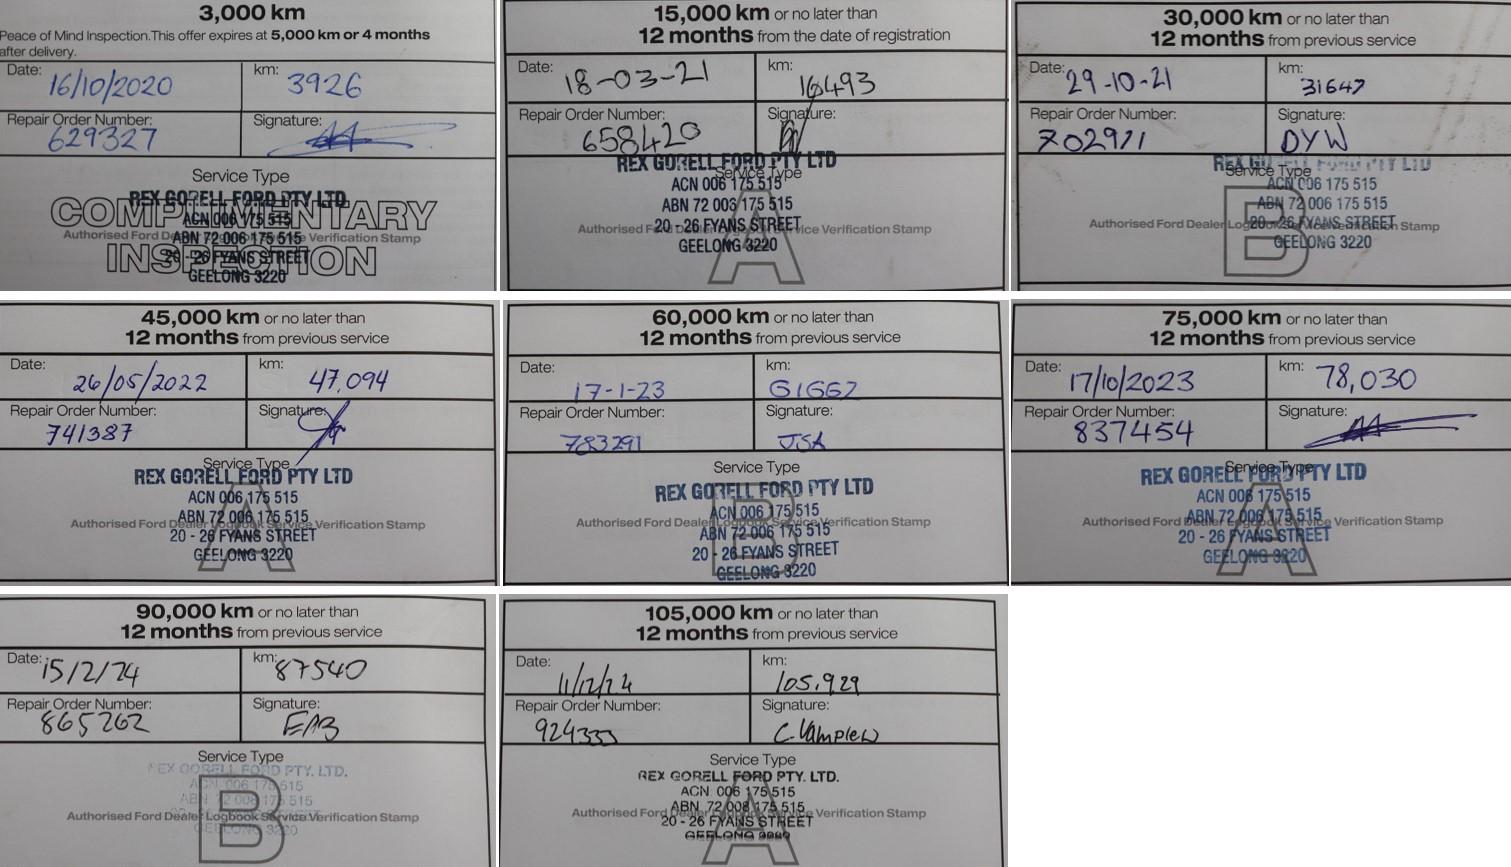 3,000 km
Peace of Mind Inspection.This offer expires at 5,000 km or 4 months
after delivery.
Date: 16/10/2020 km: 3926
Repair Order Number: 629327 Signature:
Service Type
COMPLIMENTARY INSPECTION
Authorised Ford Dealer Logbook Service Verification Stamp
REX GORELL FORD PTY LTD
ACN 006 175 515
ABN 72 006 175 515
20 - 26 FYANS STREET
GEELONG 3220
15,000 km or no later than
12 months from the date of registration
Date: 18-03-21 km: 16493
Repair Order Number: 658420 Signature:
Service Type
A
Authorised Ford Dealer Logbook Service Verification Stamp
REX GORELL FORD PTY LTD
ACN 006 175 515
ABN 72 006 175 515
20 - 26 FYANS STREET
GEELONG 3220
30,000 km or no later than
12 months from previous service
Date: 29-10-21 km: 31647
Repair Order Number: 702911 Signature: DYW
Service Type
B
Authorised Ford Dealer Logbook Service Verification Stamp
REX GORELL FORD PTY LTD
ACN 006 175 515
ABN 72 006 175 515
20 - 26 FYANS STREET
GEELONG 3220
45,000 km or no later than
12 months from previous service
Date: 26/05/2022 km: 47,094
Repair Order Number: 741387 Signature:
Service Type
A
Authorised Ford Dealer Logbook Service Verification Stamp
REX GORELL FORD PTY LTD
ACN 006 175 515
ABN 72 006 175 515
20 - 26 FYANS STREET
GEELONG 3220
60,000 km or no later than
12 months from previous service
Date: 17-1-23 km: 61662
Repair Order Number: 783291 Signature: JSA
Service Type
B
Authorised Ford Dealer Logbook Service Verification Stamp
REX GORELL FORD PTY LTD
ACN 006 175 515
ABN 72 006 175 515
20 - 26 FYANS STREET
GEELONG 3220
75,000 km or no later than
12 months from previous service
Date: 17/10/2023 km: 78,030
Repair Order Number: 837454 Signature:
Service Type
A
Authorised Ford Dealer Logbook Service Verification Stamp
REX GORELL FORD PTY LTD
ACN 006 175 515
ABN 72 006 175 515
20 - 26 FYANS STREET
GEELONG 3220
90,000 km or no later than
12 months from previous service
Date: 15/2/24 km: 87540
Repair Order Number: 865262 Signature: EAB
Service Type
B
Authorised Ford Dealer Logbook Service Verification Stamp
REX GORELL FORD PTY. LTD.
ACN 006 175 515
ABN 72 006 175 515
GEELONG 3220
105,000 km or no later than
12 months from previous service
Date: 11/12/24 km: 105,929
Repair Order Number: 924333 Signature: C. Vamplew
Service Type
A
Authorised Ford Dealer Logbook Service Verification Stamp
REX GORELL FORD PTY. LTD.
ACN 006 175 515
ABN 72 006 175 515
20 - 26 FYANS STREET
GEELONG 3220